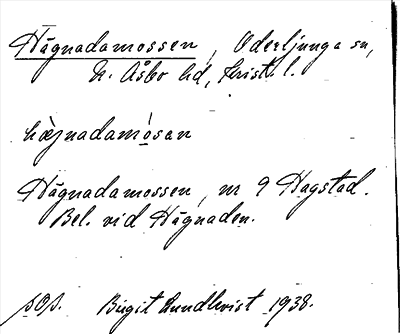 Hägnadamossen, Oderljunga sn,
N. Åsbo hd, Krist. l.
hæjnadamosan
Hägnadamossen, nr 9 Hagstad.
Bel. vid Hägnaden.
Birgit Lundkvist 1938.